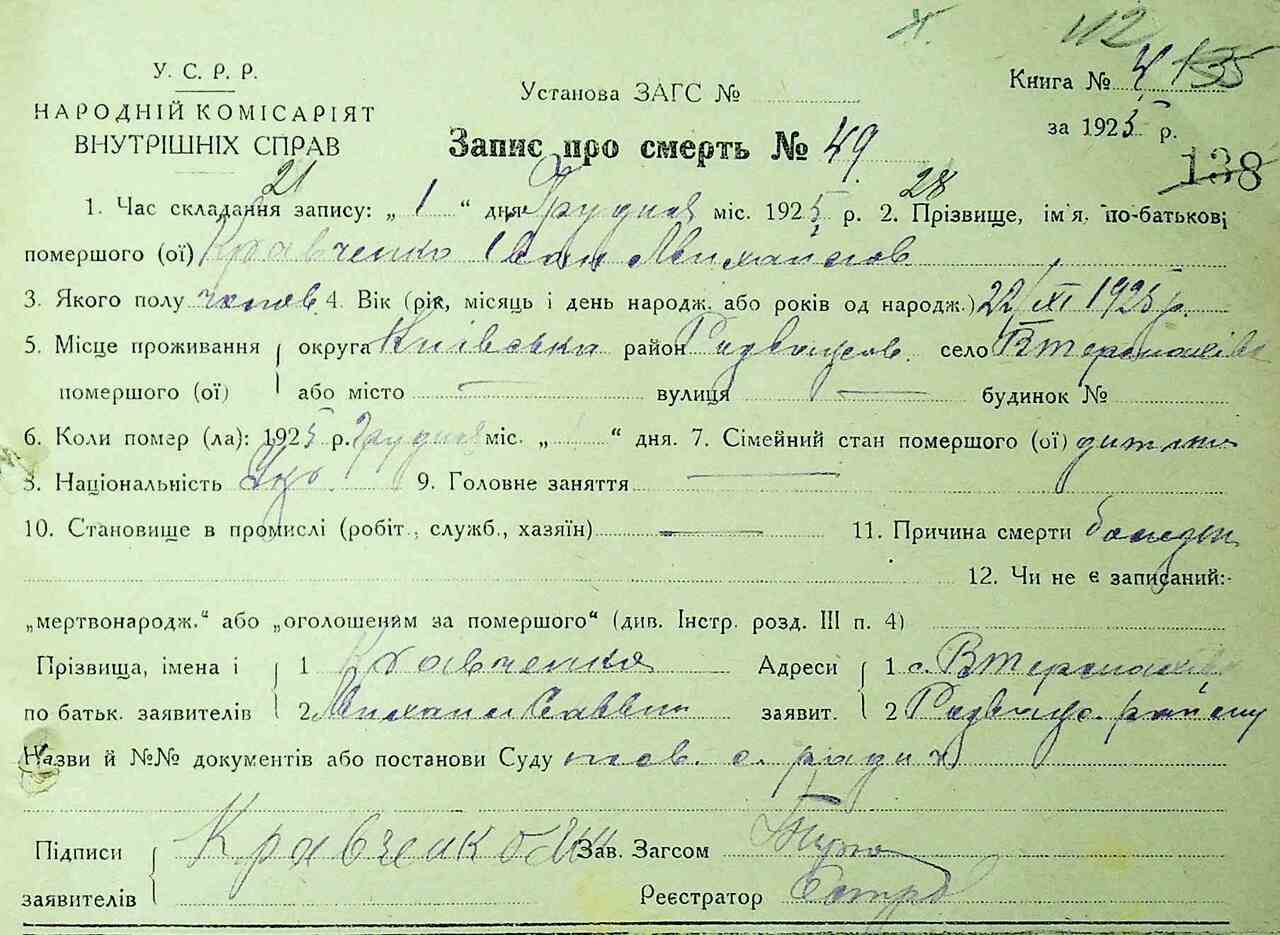 112
У. С. Р. Р.
НАРОДНІЙ КОМІСАРІЯТ
ВНУТРІШНІХ СПРАВ
Установа ЗАГС №
Книга № 4 135
за 1925 р.
Запис про смерть № 49
138
21 28
1. Час складання запису: „ 1 “ дня Грудня міс. 1925 р. 2. Прізвище, ім'я, по-батькові
помершого (ої) Кравченко Іван Михайлов
3. Якого полу чолов. 4. Вік (рік, місяць і день народж. або років од народж.) 22/XI 1925 р.
5. Місце проживання округа Київська район село
помершого (ої) або місто — вулиця — будинок №
6. Коли помер (ла): 1925 р. Грудня міс. „ “ дня. 7. Сімейний стан помершого (ої) дитина
8. Національність Укр. 9. Головне заняття —
10. Становище в промислі (робіт., служб., хазяїн) — 11. Причина смерти
12. Чи не є записаний:-
„мертвонародж.“ або „оголошеним за помершого“ (див. Інстр. розд. III п. 4)
Прізвища, імена і 1 Кравченко Адреси 1 с.
по батьк. заявителів 2 Михаил Саввич заявит. 2 району
Назви й №№ документів або постанови Суду с.
Підписи Кравченко Зав. Загсом
заявителів Реєстратор